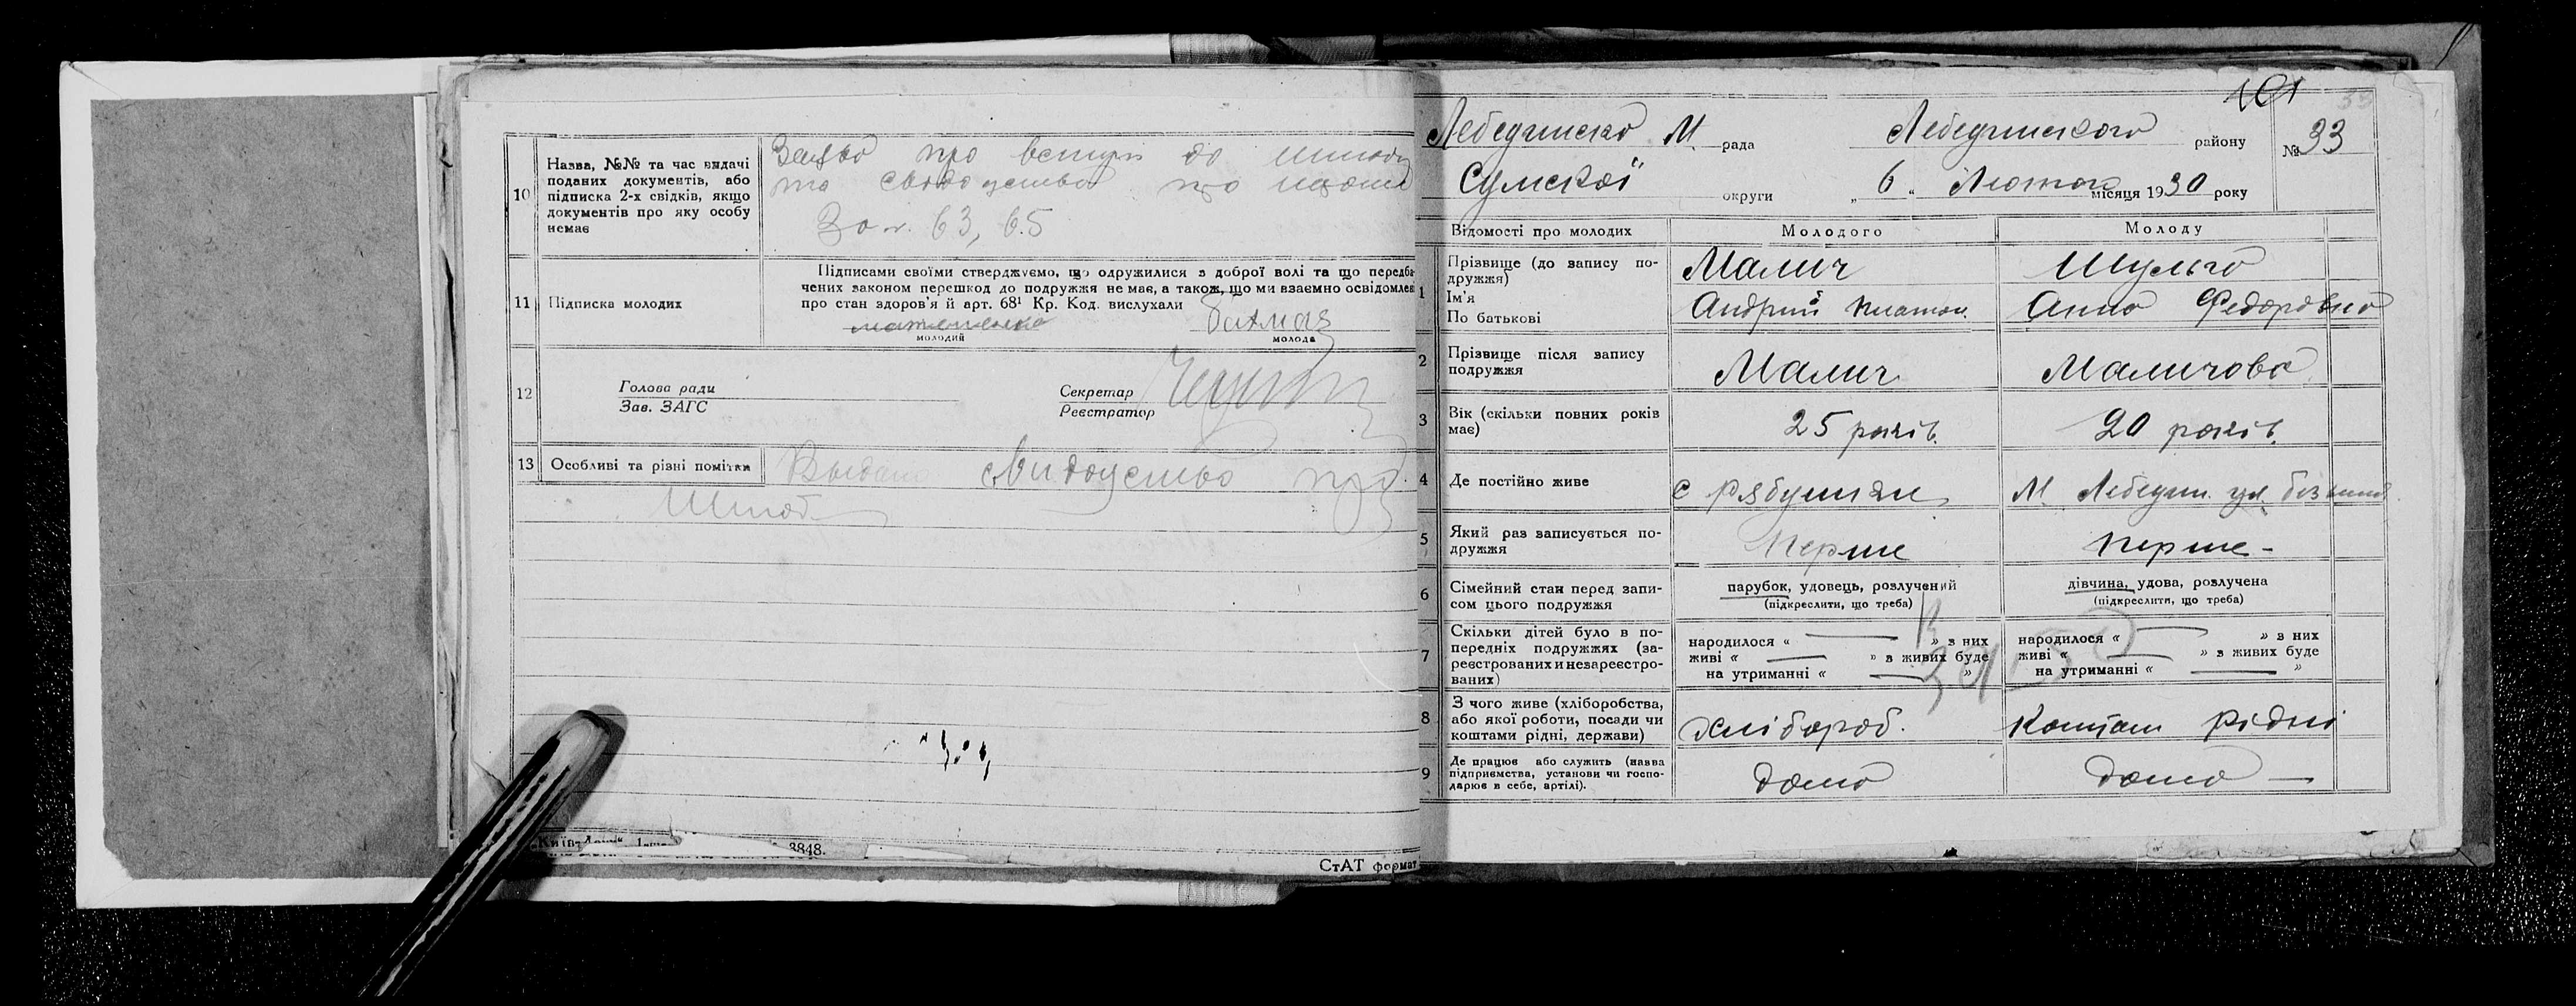 10
Назва, №№ та час видачі
поданих документів, або
підписка 2-х свідків, якщо
документів про яку особу
немає
про вступ до
та про
За № 63, 65
11
Підписка молодих
Підписами своїми стверджуємо, що одружилися з доброї волі та що передба-
чених законом перешкод до подружжя не має, а також, що ми взаємно освідомлені
про стан здоров'я й арт. 68¹ Кр. Код. вислухали
молодий
молода
12
Голова ради
Зав. ЗАГС
Секретар
Реєстратор
13
Особливі та різні помітки
про
Шлюб
3848.
СтАТ формат
101
33
Лебединско М. рада Лебединского району № 33
Сумскої округи „6“ Лютого місяця 1930 року
Відомості про молодих
Молодого
Молоду
1
Прізвище (до запису по-
дружжя)
Ім'я
По батькові
Малич
Андрий Платон.
Шульго
Анно Федоровно
2
Прізвище після запису
подружжя
Малич
Маличова
3
Вік (скільки повних років
має)
25 років.
20 років.
4
Де постійно живе
с Рябушки
М Лебедин. ул.
5
Який раз записується по-
дружжя
Перше
перше -
6
Сімейний стан перед запи-
сом цього подружжя
парубок, удовець, розлучений
(підкреслити, що треба)
дівчина, удова, розлучена
(підкреслити, що треба)
7
Скільки дітей було в по-
передніх подружжях (за-
реєстрованих и незареєстро-
ваних)
народилося « — » з них
живі « — » з живих буде
на утриманні « — »
народилося « — » з них
живі « — » з живих буде
на утриманні « — »
8
З чого живе (хліборобства,
або якої роботи, посади чи
коштами рідні, держави)
Хлібороб.
Коштам рідні
9
Де працює або служить (назва
підприємства, установи чи госпо-
дарює в себе, артілі).
дома
дома —